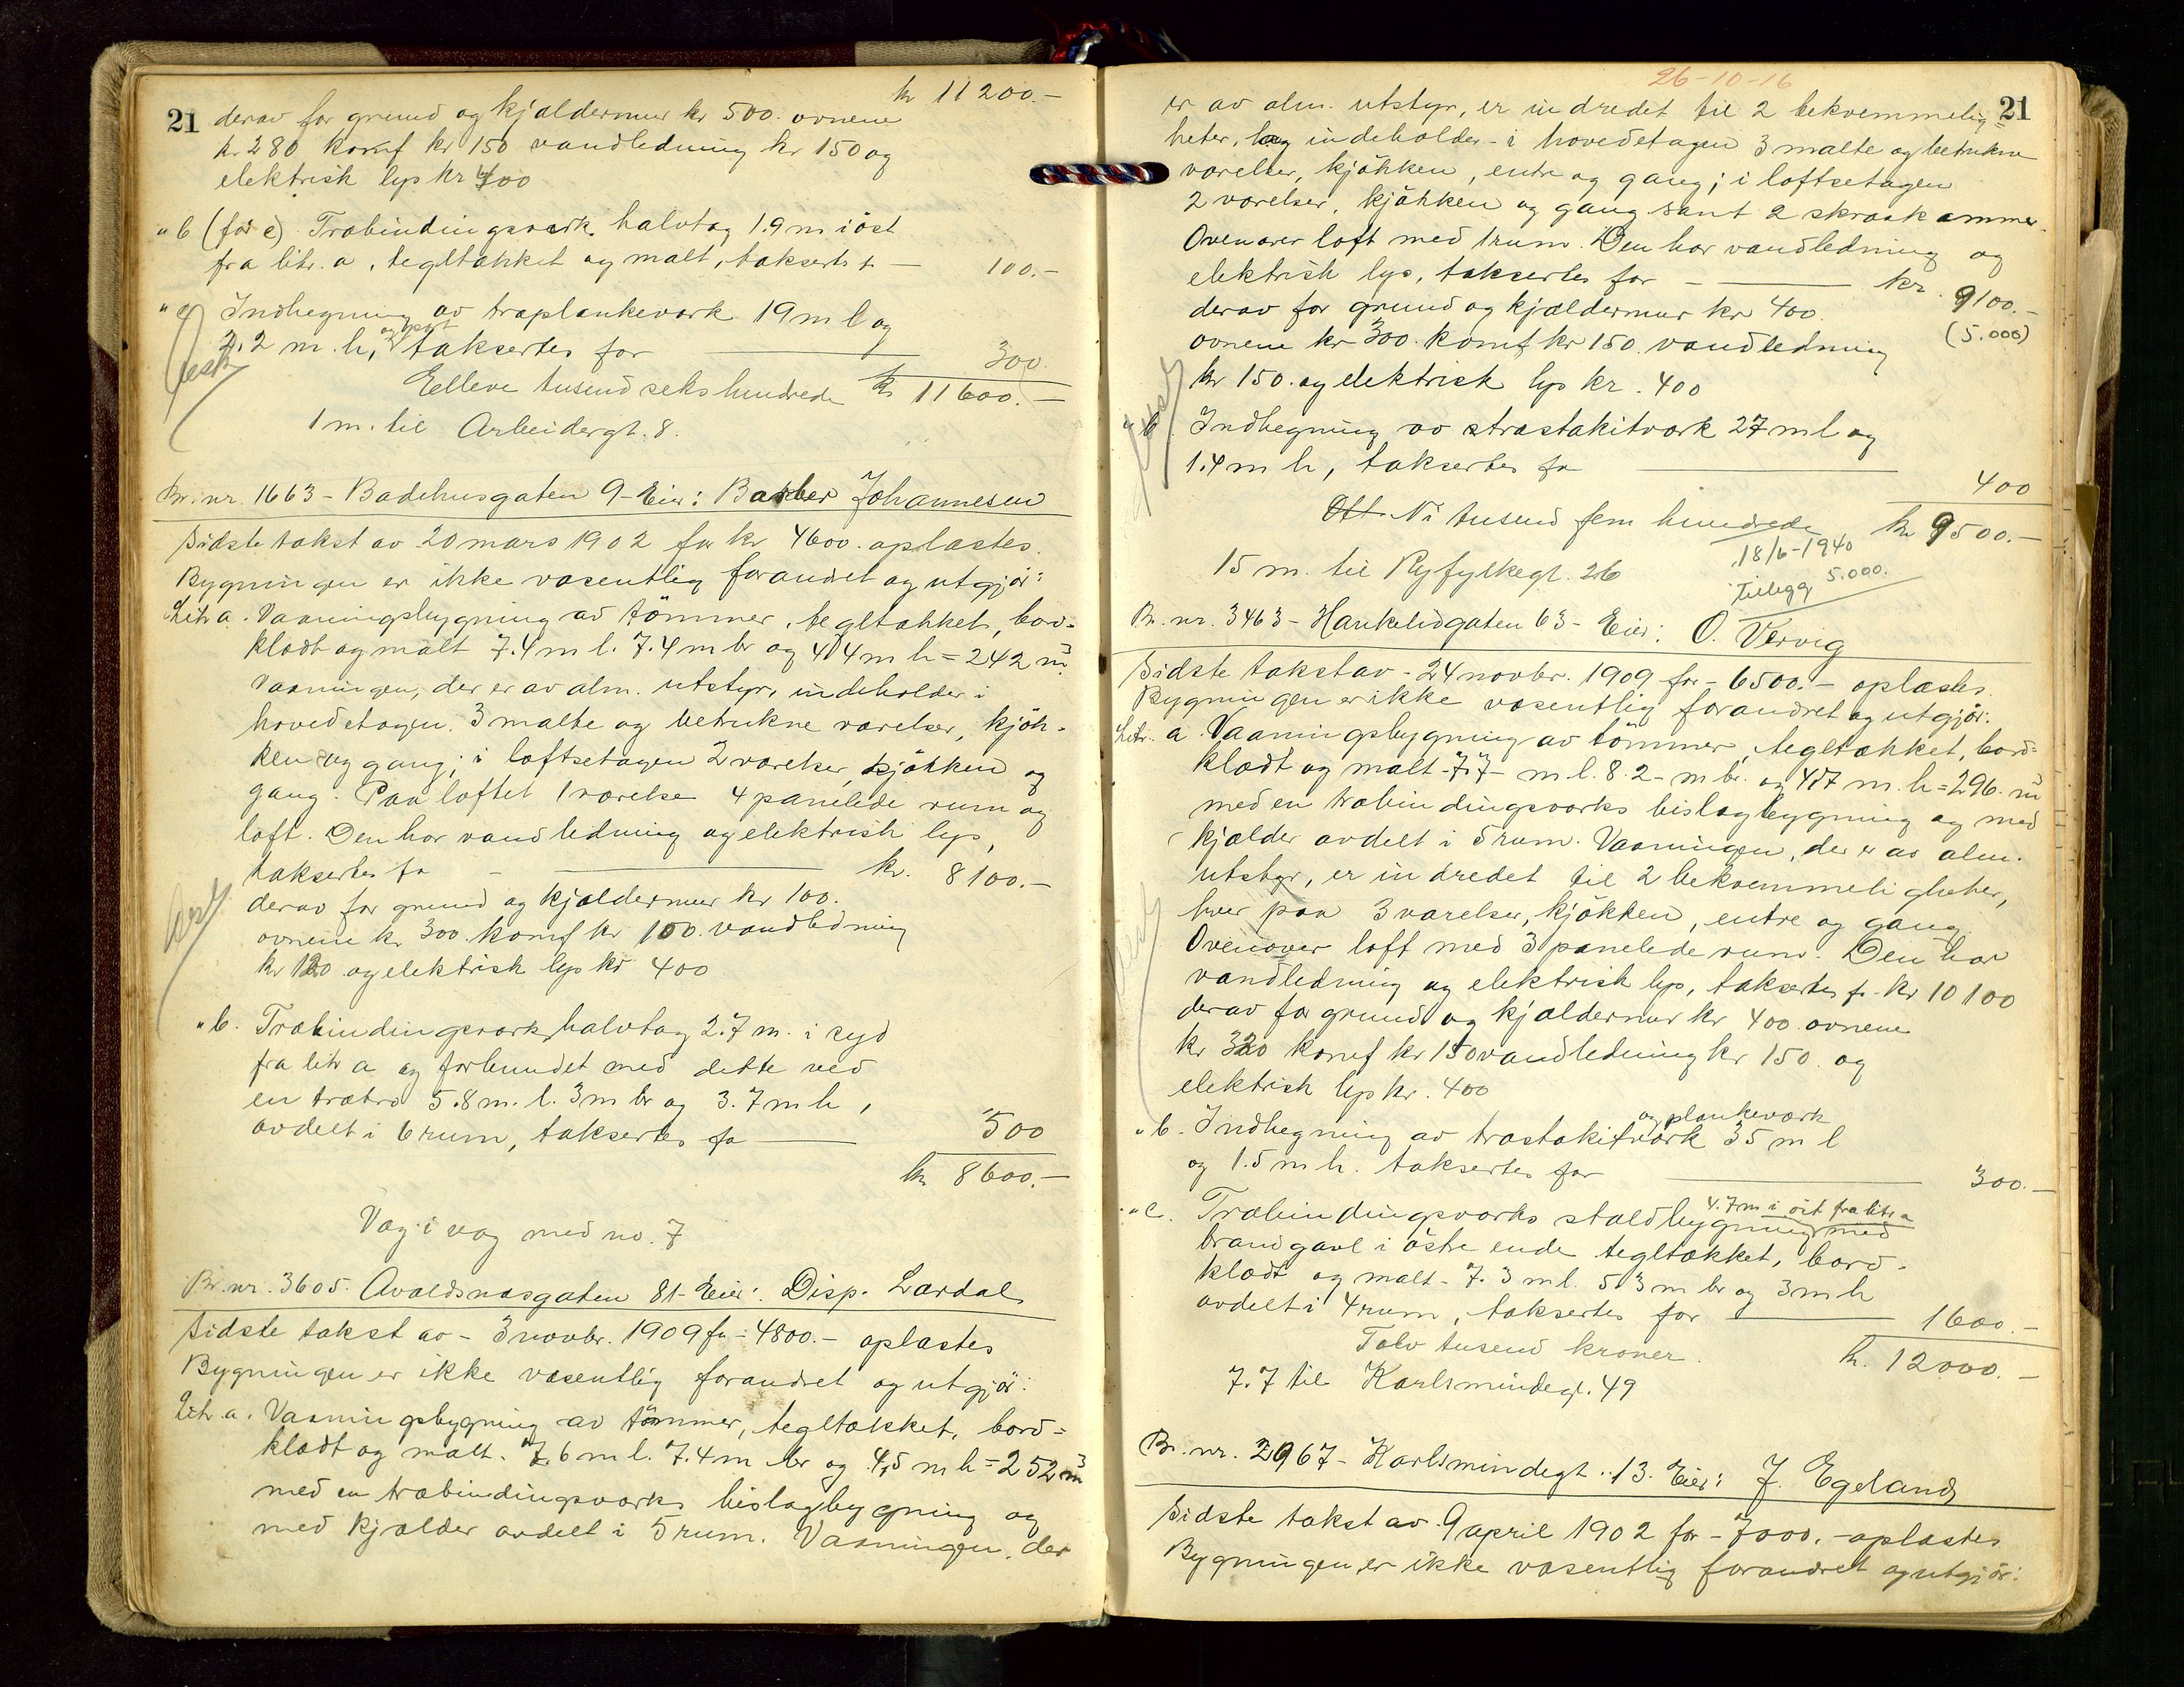 21
kr 11200.-
derav for grund og kjældermur kr 500. ovnene
kr 280 komf kr 150 vandledning kr 150 og
elektrisk lys kr 400
" b (før c) Træbindingsverk, halvtag 1.9 m i öst
fra litr. a, tegltækket og malt, taksertes f. — 100.-
" c Indhegning av træplankeværk 19 m l og
2.2 m. h, og port taksertes for — 300.
Elleve tusend seks hundrede kr 11600.-
1 m. til Arbeidergt. 8.
Br. nr. 1663 - Badehusgaten 9 - Eier: Barber Johannesen
Sidste takst av 20 mars 1902 for kr 4600. oplæstes.
Bygningen er ikke væsentlig forandret og utgjör:
Litr a. Vaaningsbygning av tömmer, tegltækket, bord-
klædt og malt 7.4 m l. 7.4 m br og 4.4 m h = 242 m³
Vaaningen, der er av alm. utstyr, indeholder i
hovedetagen. 3 malte og betrukne værelser, kjök-
ken og gang; i loftsetagen 2 værelser, kjökken og
gang. Paa loftet 1 værelse 4 panelede rum og
loft. Den har vandledning og elektrisk lys,
taksertes for — kr. 8100.-
derav for grund og kjældermur kr 100.
ovnene kr 300. komf kr 100. vandledning
kr 120 og elektrisk lys kr 400
" b. Træbindingsverk, halvtag 2.7 m. i syd
fra litr a og forbundet med dette ved
en trætro 5.8 m. l. 3 m br og 3.7 m h,
avdelt i 6 rum, taksertes for — 500
kr 8600.-
Væg i væg med no. 7
Br. nr. 3605. Avaldsnæsgaten 81 - Eier: Disp. Lardal
Sidste takst av - 3 novbr. 1909 for - 4800.- oplæstes
Bygningen er ikke væsentlig forandret og utgjör:
Litr a. Vaaningsbygning av tömmer, tegltækket, bord-
klædt og malt. 7.6 m l. 7.4 m br og 4.5 m h = 252 m³
med en træbindingsværks bislagbygning og
med kjælder avdelt i 5 rum. Vaaningen, der
26-10-16
21
er av alm. utstyr, er indredet til 2 bekvemmelig-
heter, og indeholder - i hovedetagen 3 malte og betrukne
værelser, kjökken, entre og gang; i loftsetagen
2 værelser, kjökken og gang samt 2 skraakammer.
Ovenover loft med 1 rum. Den har vandledning og
elektrisk lys, taksertes for — kr. 9100.-
derav for grund og kjældermur kr 400. (5.000)
ovnene kr 300. komf kr 150. vandledning
kr 150. og elektrisk lys kr. 400
" b. Indhegning av træstakitværk 27 m l og
1.4 m h, taksertes for — 400
Ott Ni tusend fem hundrede kr 9500.-
18/6-1940
Tillegg 5.000.
15 m. til Ryfylkegt. 26
Br. nr. 3463 - Haukelidgaten 63 - Eier: O. Vervig
Sidste takst av - 24 novbr. 1909 for - 6500.- oplæstes.
Bygningen er ikke væsentlig forandret og utgjör:
Litr. a. Vaaningsbygning av tömmer, tegltækket, bord-
klædt og malt - 7.7 - m l. 8.2 - m br. og 4.7 m. h = 296. m³
med en træbindingsværks bislagbygning og med
kjælder avdelt i 5 rum. Vaaningen, der er av alm.
utstyr, er indredet til 2 bekvemmeligheter,
hver paa 3 værelser, kjökken, entre og gang.
Ovenover loft med 3 panelede rum. Den har
vandledning og elektrisk lys, taksertes for kr 10100
derav for grund og kjældermur kr 400. ovnene
kr 320 komf kr 150 vandledning kr 150. og
elektrisk lys kr. 400
" b. Indhegning av træstakitværk og plankeværk 35 m l
og 1.5 m h. taksertes for — 300.-
" c. Træbindingsværks staldbygning 4.7 m i öst fra litr a med
brandgavl i östre ende tegltækket, bord-
klædt og malt - 7.3 m l. 5.3 m br og 3 m h
avdelt i 4 rum, taksertes for — 1600.-
Tolv tusend kroner. kr. 12000.-
7.7 til Karlsmindegt. 49
Br. nr. 2967 - Karlsmindegt. 13. Eier: J. Egeland
Sidste takst av 9 april 1902 for - 7000. - oplæstes
Bygningen er ikke væsentlig forandret og utgjör: